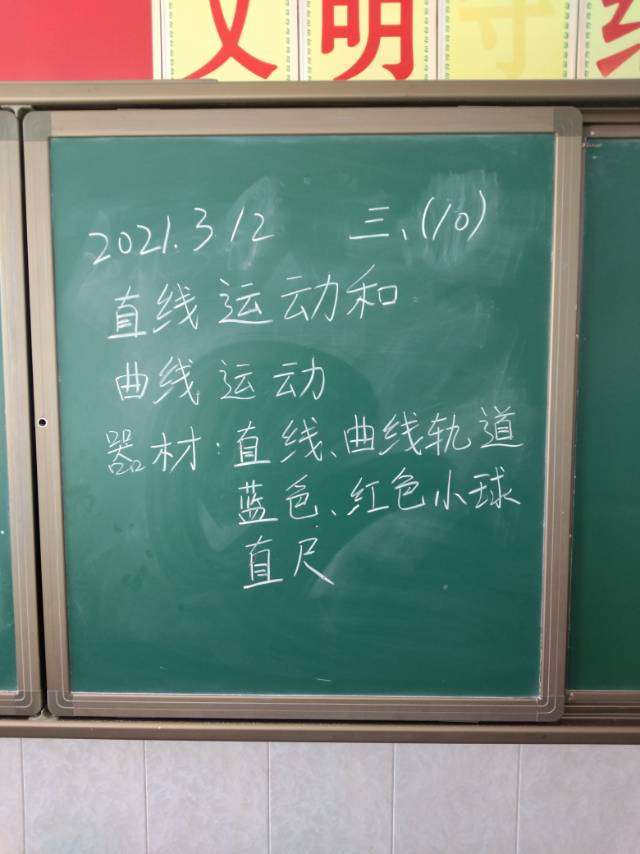 文明守
2021.3.12 三、(10)
直线运动和
曲线运动
器材:直线、曲线轨道
蓝色、红色小球
直尺